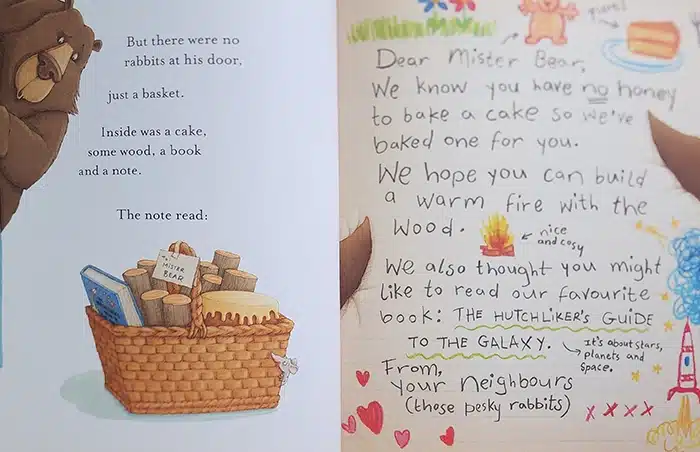 But there were no
rabbits at his door,
just a basket.
Inside was a cake,
some wood, a book
and a note.
The note read:
TO
MISTER
BEAR
yum!
Dear Mister Bear,
We know you have no honey
to bake a cake so we've
baked one for you.
We hope you can build
a warm fire with the
wood.
nice
and cosy
We also thought you might
like to read our favourite
book: THE HUTCHLIKER'S GUIDE
TO THE GALAXY.
It's about stars,
planets and
space.
From,
Your Neighbours
(those pesky rabbits)
x x x x